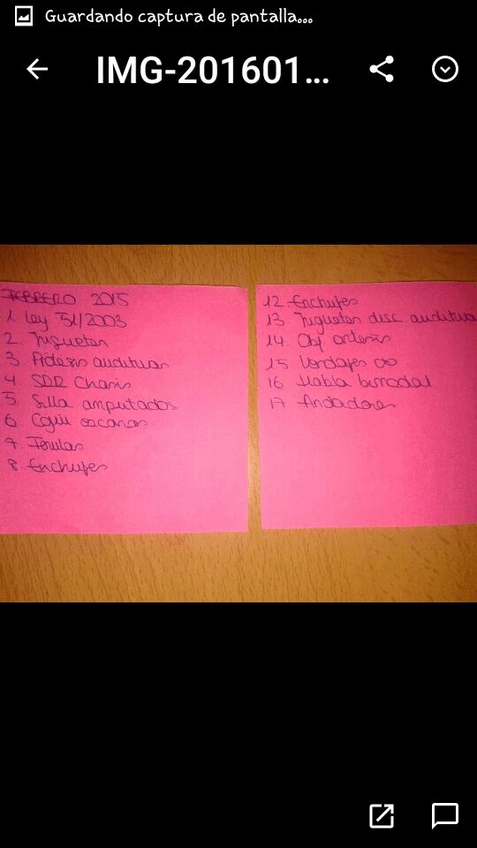 Guardando captura de pantalla...
IMG-201601...
FEBRERO 2015
1. Ley 51/2003
2. Juguetes
3. auditivas
4
5. Silla amputados
6
7. Férulas
8. Enchufes
12. Enchufes
13 Juguetes disc auditiva
14. Obj
15 Vendajes
16 Habla bimodal
17 Andadores